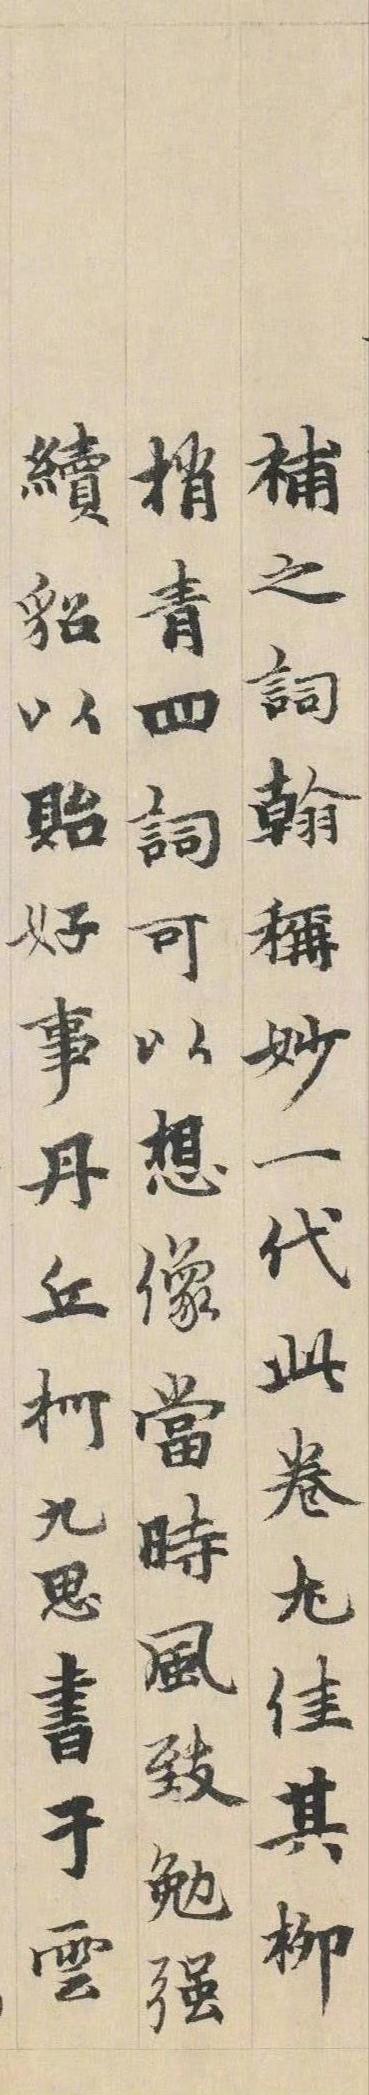 補之詞翰稱妙一代此卷尤佳其柳
梢青四詞可以想像當時風致勉强
續貂以貽好事丹丘柯九思書于雲